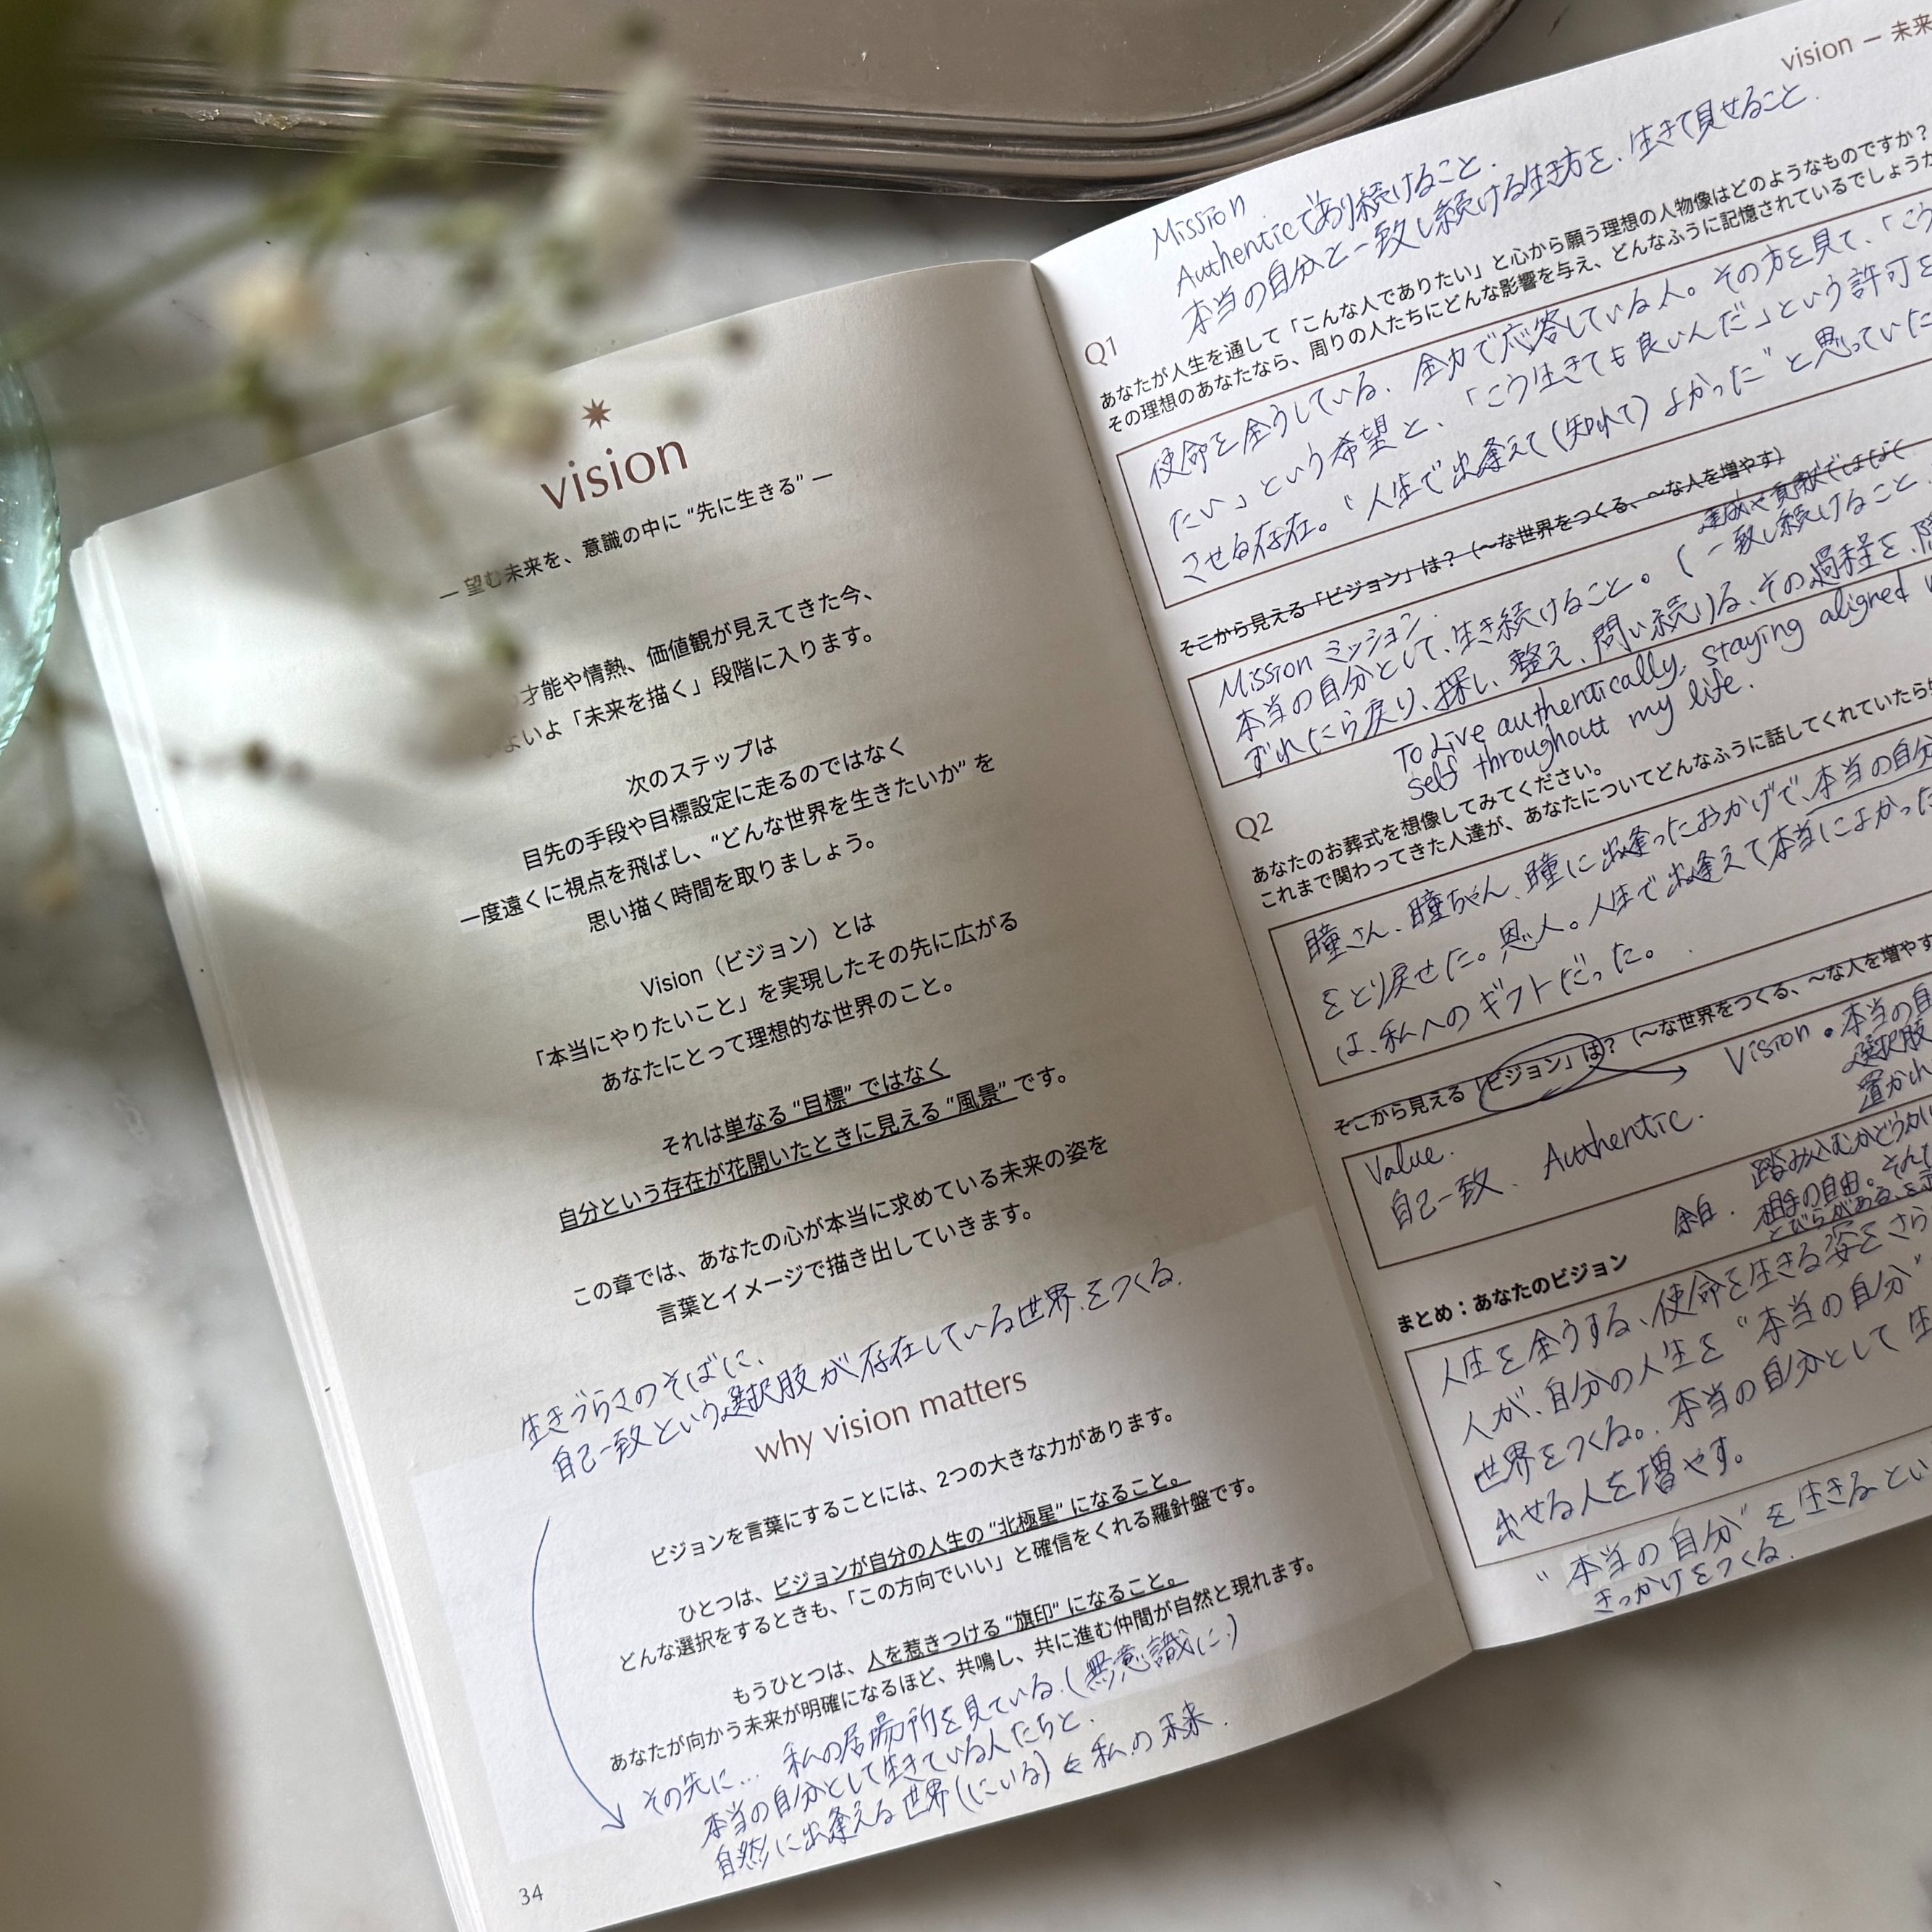 vision
― 望む未来を、意識の中に “先に生きる” ―
才能や情熱、価値観が見えてきた今、
よいよ「未来を描く」段階に入ります。
次のステップは
目先の手段や目標設定に走るのではなく
一度遠くに視点を飛ばし、“どんな世界を生きたいか” を
思い描く時間を取りましょう。
Vision（ビジョン）とは
「本当にやりたいこと」を実現したその先に広がる
あなたにとって理想的な世界のこと。
それは単なる “目標” ではなく
自分という存在が花開いたときに見える “風景” です。
この章では、あなたの心が本当に求めている未来の姿を
言葉とイメージで描き出していきます。
生きづらさのそばに、
自己一致という選択肢が存在している世界をつくる.
why vision matters
ビジョンを言葉にすることには、2つの大きな力があります。
ひとつは、ビジョンが自分の人生の “北極星” になること。
どんな選択をするときも、「この方向でいい」と確信をくれる羅針盤です。
もうひとつは、人を惹きつける “旗印” になること。
あなたが向かう未来が明確になるほど、共鳴し、共に進む仲間が自然と現れます。
その先に… 私の居場所を見ている.(無意識に.)
本当の自分として生きている人たちと.
自然に出逢える世界(にいる) ← 私の未来.
34
vision ― 未来
Mission
Authenticであり続けること.
本当の自分と一致し続ける生き方を、生きて見せること.
Q1
あなたが人生を通して「こんな人でありたい」と心から願う理想の人物像はどのようなものですか？
その理想のあなたなら、周りの人たちにどんな影響を与え、どんなふうに記憶されているでしょうか
使命を全うしている、全力で応答している人。その方を見て、「こう
たい」という希望と、「こう生きても良いんだ」という許可を
させる存在。“人生で出逢えて(知れて)よかった”と思っていた
そこから見える「ビジョン」は？（〜な世界をつくる、〜な人を増やす）
貢献ではなく
一致し続けること.
Mission ミッション.
本当の自分として、生き続けること。(
ずれたら戻り、探し、整え、問い続ける、その過程を、
To Live authentically, staying aligned
self throughout my life.
Q2
あなたのお葬式を想像してみてください。
これまで関わってきた人達が、あなたについてどんなふうに話してくれていたら
瞳さん、瞳ちゃん、瞳に出逢ったおかげで、本当の自分
をとり戻せた。恩人。人生で出逢えて本当によかった
は、私へのギフトだった。
そこから見える「ビジョン」は？（〜な世界をつくる、〜な人を増やす
Vision • 本当の自
選択肢
置かれ
Value.
自己一致、 Authentic.
余白. 踏み込むかどうか
相手の自由。
とびらがある、を
まとめ：あなたのビジョン
人生を全うする、使命を生きる姿をさら
人が、自分の人生を“本当の自分”
世界をつくる。本当の自分として生
出せる人を増やす。
“本当の自分”を生きるとい
きっかけをつくる.